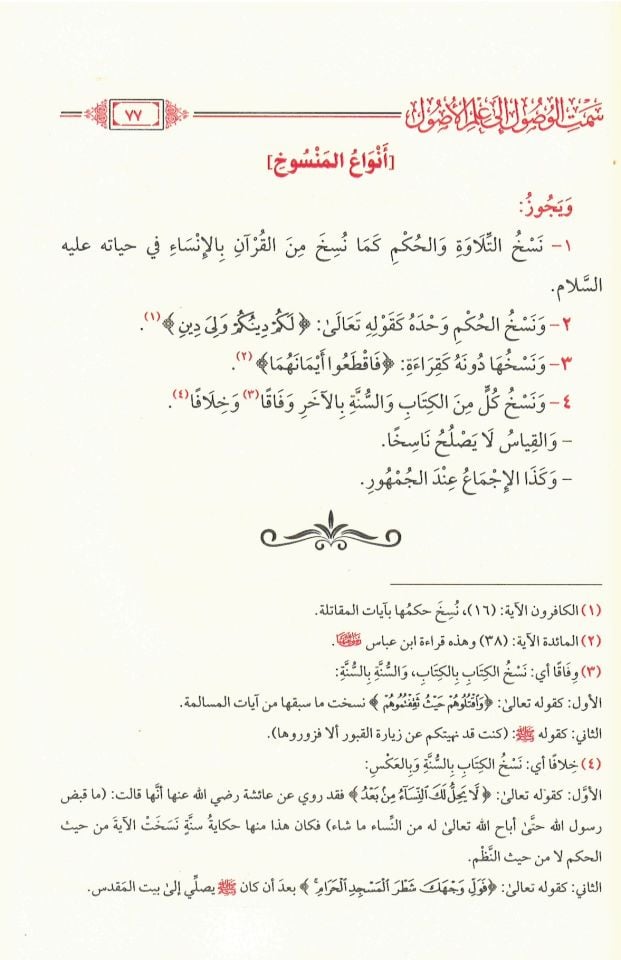 سَمْتُ الوُصُولِ إِلَى عِلْمِ الأُصُولِ
٧٧
[أَنْوَاعُ المَنْسُوخِ]
وَيَجُوزُ:
١- نَسْخُ التِّلَاوَةِ وَالحُكْمِ كَمَا نُسِخَ مِنَ القُرْآنِ بِالإِنْسَاءِ فِي حياته عليه
السَّلام.
٢- وَنَسْخُ الحُكْمِ وَحْدَهُ كَقَوْلِهِ تَعَالَىٰ: ﴿لَكُمْ دِينُكُمْ وَلِيَ دِينِ﴾(١).
٣- وَنَسْخُهَا دُونَهُ كَقِرَاءَةِ: ﴿فَاقْطَعُوا أَيْمَانَهُمَا﴾(٢).
٤- وَنَسْخُ كُلٍّ مِنَ الكِتَابِ وَالسُّنَّةِ بِالآخَرِ وَفَاقًا(٣) وَخِلَافًا(٤).
- وَالقِيَاسُ لَا يَصْلُحُ نَاسِخًا.
- وَكَذَا الإِجْمَاعُ عِنْدَ الجُمْهُورِ.
(١) الكافرون الآية: (١٦)، نُسِخَ حكمُها بآيات المقاتلة.
(٢) المائدة الآية: (٣٨) وهذه قراءة ابن عباس رضي الله عنهما.
(٣) وِفَاقًا أي: نَسْخُ الكِتَابِ بِالكِتَابِ، وَالسُّنَّةِ بِالسُّنَّةِ:
الأول: كقوله تعالىٰ: ﴿وَاقْتُلُوهُمْ حَيْثُ ثَقِفْتُمُوهُمْ﴾ نسخت ما سبقها من آيات المسالمة.
الثاني: كقوله ﷺ: (كنت قد نهيتكم عن زيارة القبور ألا فزوروها).
(٤) خِلافًا أي: نَسْخُ الكِتَابِ بِالسُّنَّةِ وَبِالعَكْسِ:
الأوَّل: كقوله تعالىٰ: ﴿لَا يَحِلُّ لَكَ النِّسَاءُ مِنْ بَعْدُ﴾ فقد روي عن عائشة رضي الله عنها أنَّها قالت: (ما قبض
رسول الله حتَّىٰ أباح الله تعالىٰ له من النِّساء ما شاء) فكان هذا منها حكايةُ سنَّةٍ نَسَخَتْ الآيةَ من حيث
الحكم لا من حيث النَّظْم.
الثاني: كقوله تعالىٰ: ﴿فَوَلِّ وَجْهَكَ شَطْرَ الْمَسْجِدِ الْحَرَامِ﴾ بعدَ أن كان ﷺ يصلِّي إلىٰ بيت المَقدس.